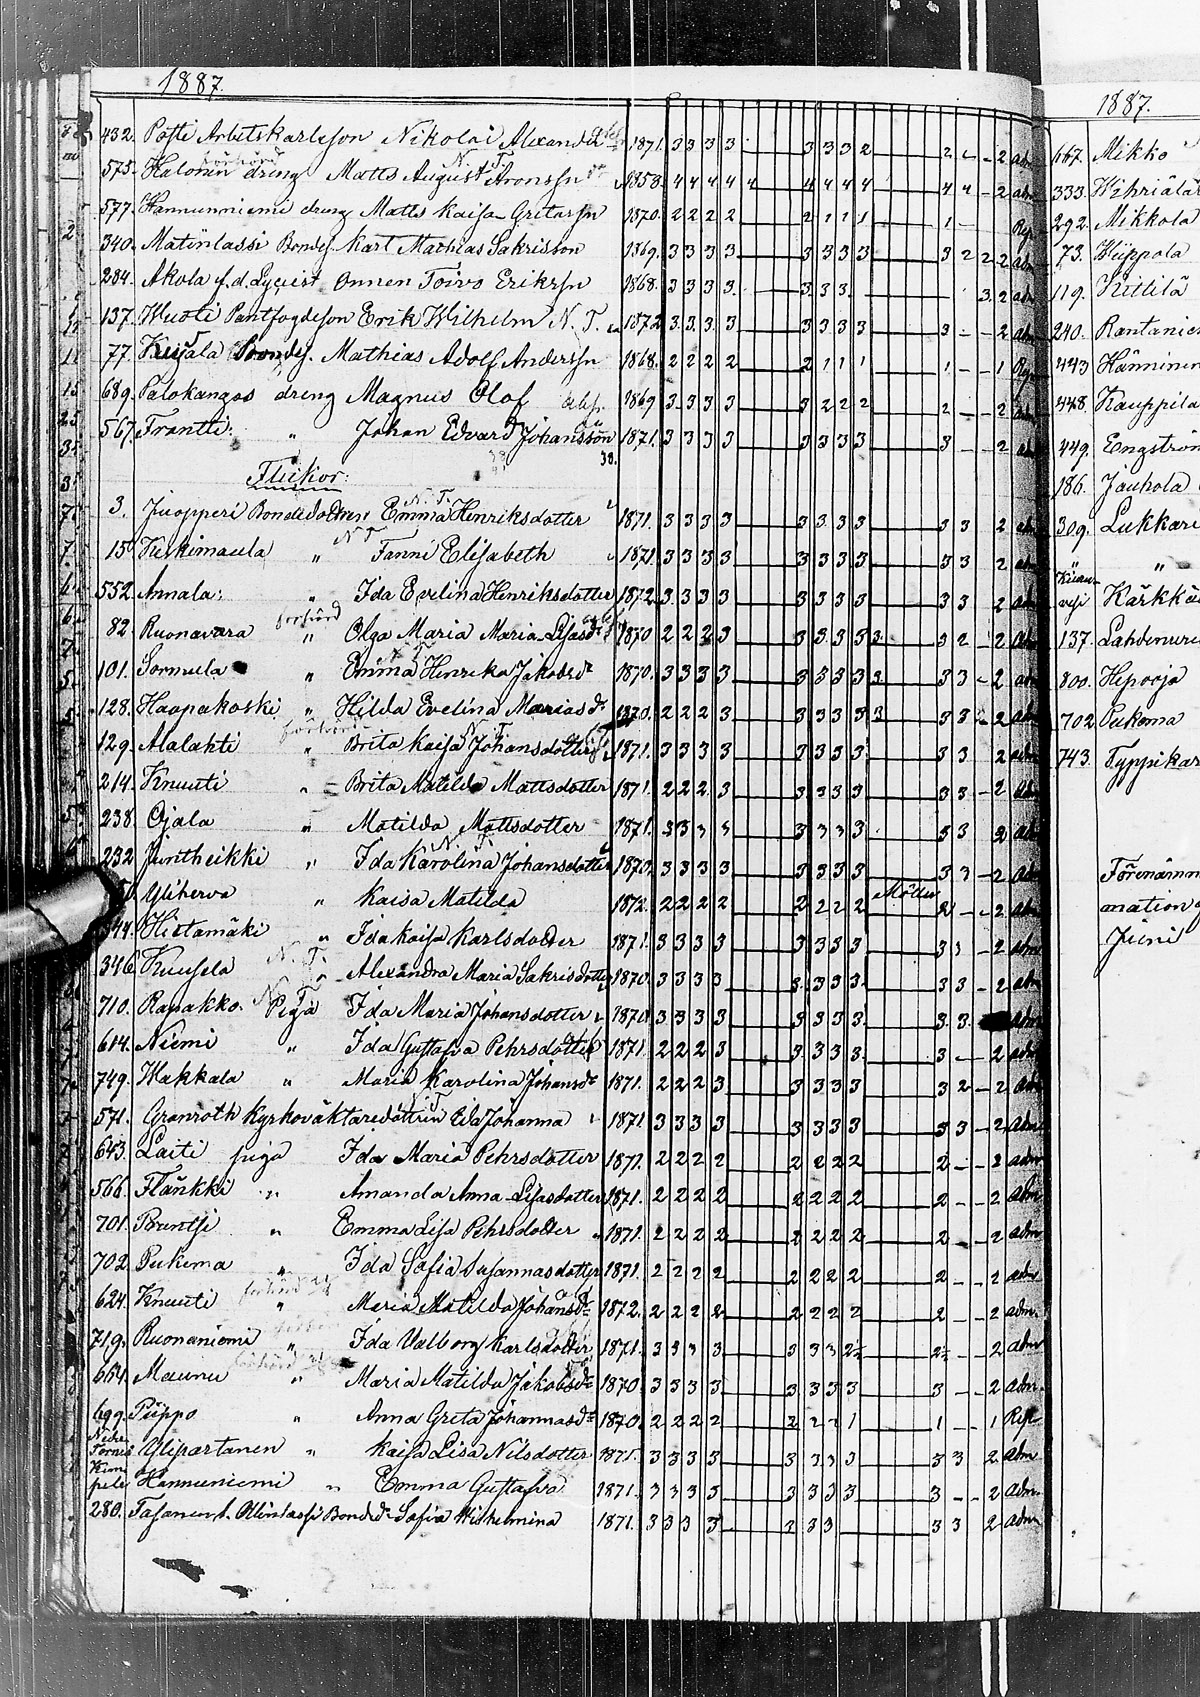 1887.
432. Posti Arbetskarlsson Nikolai Alexander 1871. 3 3 3 3 3 3 3 2 2 - - 2 adm
575. Halonen dreng Matts August Aronssn N. T. 1858. 4 4 4 4 4 4 4 4 4 4 4 - 2 adm
577. Hannunniemi dreng Matts Kaisa-Gretassn 1870. 2 2 2 2 2 1 1 1 1 - Rep.
340. Matinlassi Bondes. Karl Mathias Sakrisson 1869. 3 3 3 3 3 3 3 3 3 2 2 2 adm
284. Akola f.d. Lyceist Onnen Toivo Erikssn 1868. 3 3 3 3 3 3 3 3. 2 adm
137. Wuoti Pantfogdeson Erik Wilhelm N. T. 1872 3 3 3 3 3 3 3 3 3 - - 2 adm
77. Kujala Bondes. Mathias Adolf Anderssn 1868. 2 2 2 2 2 1 1 1 1 - - 1 Rep
689. Palokangas dreng Magnus Olof 1869 3 3 3 3 3 2 2 2 2 - - 2 adm
567. Frantti: " Johan Edvard Johansson 1871. 3 3 3 3 3 3 3 3 3 - 2 adm
38.
Flickor:
3. Juopperi Bondedottren Emma Henriksdotter N. T. 1871. 3 3 3 3 3 3 3 3 3 3 2 adm
15. Keskimaula " Fanni Elisabeth N T 1871. 3 3 3 3 3 3 3 3 3 3 2 adm
552. Annala: " Ida Evelina Henriksdotter 1872 3 3 3 3 3 3 3 3 3 3 2 adm
82. Ruonavaara förhörd " Olga Maria Maria-Lisasdr 1870 2 2 2 3 3 3 3 3 3 3 2 - 2 adm
101. Sormula " Emma Henrika Jakobsdr 1870. 3 3 3 3 3 3 3 3 3 3 3 - 2 adm
128. Haapakoski " Hilda Evelina Mariasdr 1870. 2 2 2 3 3 3 3 3 3 3 3 - 2 adm
129. Alalahti förhörd " Brita Kaisa Johansdotter N. T. 1871. 3 3 3 3 3 3 3 3 3 3 2 adm
214. Knuuti " Brita Matilda Mattsdotter 1871. 2 2 2 3 3 3 3 3 3 3 - 2 adm
238. Ojala " Matilda Mattsdotter 1871. 3 3 3 3 3 3 3 3 3 3 2 adm
232 Juntheikki " Ida Karolina Johansdotter N. T. 1870. 3 3 3 3 3 3 3 3 3 3 - 2 adm
Yliherva " Kaisa Matilda 1872. 2 2 2 2 2 2 2 2 2 - - 2 adm
344. Hietamäki " Ida Kaisa Karlsdotter 1871. 3 3 3 3 3 3 3 3 3 3 - 2 adm
346 Kuusela N. T. " Alexandra Maria Sakrisdotter 1870. 3 3 3 3 3 3 3 3 3 3 - 2 adm
710. Rapakko. Piga N. T. Ida Maria Johansdotter 1870 3 3 3 3 3 3 3 3 3. 3. adm
614. Niemi " Ida Gustafva Pehrsdotter 1871. 2 2 2 3 3 3 3 3 3 - - 2 adm
749. Wakkala " Maria Karolina Johansdr 1871. 2 2 2 3 3 3 3 3 3 2 - 2 adm
571. Granroth Kyrkoväktaredottren Eva Johanna 1871 3 3 3 3 3 3 3 3 3 3 - 2 adm
643. Laiti piga Ida Maria Pehrsdotter 1871. 2 2 2 2 2 2 2 2 2 - - 2 adm
566. Flänkki " Amanda Anna-Lisasdotter 1871. 2 2 2 2 2 2 2 2 2 - - 2 adm
701. Pruntsi " Emma Lisa Pehrsdotter 1871. 2 2 2 2 2 2 2 2 2 - - 2 adm
702. Peikema " Ida Sofia Susannasdotter 1871. 2 2 2 2 2 2 2 2 2 - - 2 adm
624. Knuuti förhörd " Maria Matilda Johansdr 1872. 2 2 2 2 2 2 2 2 2 - - 2 adm.
719. Ruonaniemi " Ida Valborg Karlsdotter 1871. 3 3 3 3 3 3 3 2½ 2½ - - 2 adm
664. Maunu förhörd " Maria Matilda Jakobsdr 1870 3 3 3 3 3 3 3 3 3 - - 2 adm.
699. Piippo " Anna Greta Johannasdr 1870 2 2 2 2 2 2 2 1 1 - - 1 Rep
Nedre Torneå Ylipartanen " Kaisa Lisa Nilsdotter 1871. 3 3 3 3 3 3 3 3 3 3 2 adm
Kempele Hannuniemi " Emma Gustafva 1871. 3 3 3 3 3 3 3 3 3 - - 2 adm.
280. Tasanen l. Ollinlassi Bondedr Sofia Wilhelmina 1871. 3 3 3 3 3 3 3 3 3 2 adm
1887.
667. Mikko
333. Wihriälä
292. Mikkola
73. Wiippola
119. Kittilä
240. Rantanie
443 Hänninen
448. Kauppila
449. Engström
186. Jauhola
309. Lukkari
"
Kiuruvesi Kärkkä
137. Lahdenure
800. Hepooja
702 Peikema
743. Typpikar
Förenämn
mation
Juni